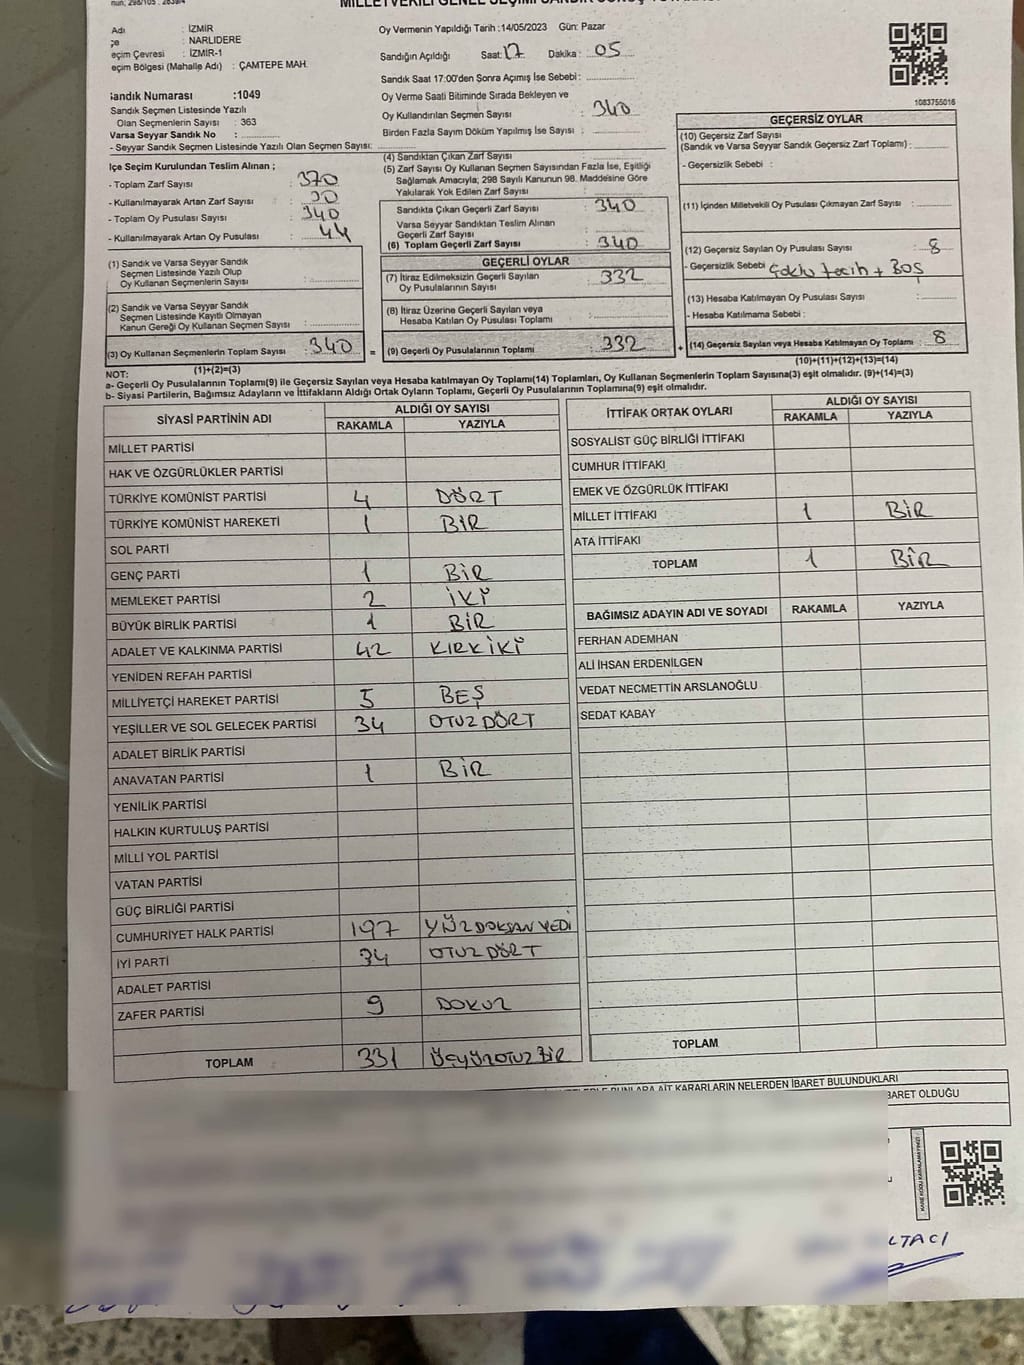 Adı : İZMİR
çe : NARLIDERE
eçim Çevresi : İZMİR-1
eçim Bölgesi (Mahalle Adı) : ÇAMTEPE MAH.
Sandık Numarası :1049
Sandık Seçmen Listesinde Yazılı
Olan Seçmenlerin Sayısı : 363
Varsa Seyyar Sandık No : ..............
- Seyyar Sandık Seçmen Listesinde Yazılı Olan Seçmen Sayısı:
Oy Vermenin Yapıldığı Tarih :14/05/2023 Gün: Pazar
Sandığın Açıldığı Saat: 17 Dakika : 05
Sandık Saat 17:00'den Sonra Açımış İse Sebebi: ..............
Oy Verme Saati Bitiminde Sırada Bekleyen ve
Oy Kullandırılan Seçmen Sayısı : 340
Birden Fazla Sayım Döküm Yapılmış İse Sayısı : ..............
1083755016
İlçe Seçim Kurulundan Teslim Alınan ;
- Toplam Zarf Sayısı : 370
- Kullanılmayarak Artan Zarf Sayısı : 30
- Toplam Oy Pusulası Sayısı : 340
- Kullanılmayarak Artan Oy Pusulası : 44
(1) Sandık ve Varsa Seyyar Sandık
Seçmen Listesinde Yazılı Olup
Oy Kullanan Seçmenlerin Sayısı : ..............
(2) Sandık ve Varsa Seyyar Sandık
Seçmen Listesinde Kayıtlı Olmayan
Kanun Gereği Oy Kullanan Seçmen Sayısı : ..............
(3) Oy Kullanan Seçmenlerin Toplam Sayısı : 340 =
(1)+(2)=(3)
(4) Sandıktan Çıkan Zarf Sayısı : ..............
(5) Zarf Sayısı Oy Kullanan Seçmen Sayısından Fazla İse, Eşitliği
Sağlamak Amacıyla; 298 Sayılı Kanunun 98. Maddesine Göre
Yakılarak Yok Edilen Zarf Sayısı : ..............
Sandıkta Çıkan Geçerli Zarf Sayısı : 340
Varsa Seyyar Sandıktan Teslim Alınan
Geçerli Zarf Sayısı : ..............
(6) Toplam Geçerli Zarf Sayısı : 340
GEÇERLİ OYLAR
(7) İtiraz Edilmeksizin Geçerli Sayılan
Oy Pusulalarının Sayısı : 332
(8) İtiraz Üzerine Geçerli Sayılan veya
Hesaba Katılan Oy Pusulası Toplamı : ..............
(9) Geçerli Oy Pusulalarının Toplamı : 332 +
GEÇERSİZ OYLAR
(10) Geçersiz Zarf Sayısı
(Sandık ve Varsa Seyyar Sandık Geçersiz Zarf Toplamı) : ..............
- Geçersizlik Sebebi :
(11) İçinden Milletvekili Oy Pusulası Çıkmayan Zarf Sayısı : ..............
(12) Geçersiz Sayılan Oy Pusulası Sayısı : 8
- Geçersizlik Sebebi Çoklu tercih + Boş
(13) Hesaba Katılmayan Oy Pusulası Sayısı : ..............
- Hesaba Katılmama Sebebi :
(14) Geçersiz Sayılan veya Hesaba Katılmayan Oy Toplamı : 8
(10)+(11)+(12)+(13)=(14)
NOT:
a- Geçerli Oy Pusulalarının Toplamı(9) ile Geçersiz Sayılan veya Hesaba katılmayan Oy Toplamı(14) Toplamları, Oy Kullanan Seçmenlerin Toplam Sayısına(3) eşit olmalıdır. (9)+(14)=(3)
b- Siyasi Partilerin, Bağımsız Adayların ve İttifakların Aldığı Ortak Oyların Toplamı, Geçerli Oy Pusulalarının Toplamına(9) eşit olmalıdır.
SİYASİ PARTİNİN ADI ALDIĞI OY SAYISI
RAKAMLA YAZIYLA
MİLLET PARTİSİ
HAK VE ÖZGÜRLÜKLER PARTİSİ
TÜRKİYE KOMÜNİST PARTİSİ 4 DÖRT
TÜRKİYE KOMÜNİST HAREKETİ 1 BİR
SOL PARTİ
GENÇ PARTİ 1 BİR
MEMLEKET PARTİSİ 2 İKİ
BÜYÜK BİRLİK PARTİSİ 1 BİR
ADALET VE KALKINMA PARTİSİ 42 KIRKİKİ
YENİDEN REFAH PARTİSİ
MİLLİYETÇİ HAREKET PARTİSİ 5 BEŞ
YEŞİLLER VE SOL GELECEK PARTİSİ 34 OTUZDÖRT
ADALET BİRLİK PARTİSİ
ANAVATAN PARTİSİ 1 BİR
YENİLİK PARTİSİ
HALKIN KURTULUŞ PARTİSİ
MİLLİ YOL PARTİSİ
VATAN PARTİSİ
GÜÇ BİRLİĞİ PARTİSİ
CUMHURİYET HALK PARTİSİ 197 YÜZDOKSANYEDİ
İYİ PARTİ 34 OTUZDÖRT
ADALET PARTİSİ
ZAFER PARTİSİ 9 DOKUZ
TOPLAM 331 ÜÇYÜZOTUZBİR
İTTİFAK ORTAK OYLARI ALDIĞI OY SAYISI
RAKAMLA YAZIYLA
SOSYALİST GÜÇ BİRLİĞİ İTTİFAKI
CUMHUR İTTİFAKI
EMEK VE ÖZGÜRLÜK İTTİFAKI
MİLLET İTTİFAKI 1 BİR
ATA İTTİFAKI
TOPLAM 1 BİR
BAĞIMSIZ ADAYIN ADI VE SOYADI RAKAMLA YAZIYLA
FERHAN ADEMHAN
ALİ İHSAN ERDENİLGEN
VEDAT NECMETTİN ARSLANOĞLU
SEDAT KABAY
TOPLAM
AİT KARARLARIN NELERDEN İBARET BULUNDUKLARI
BARET OLDUĞU
LTACI